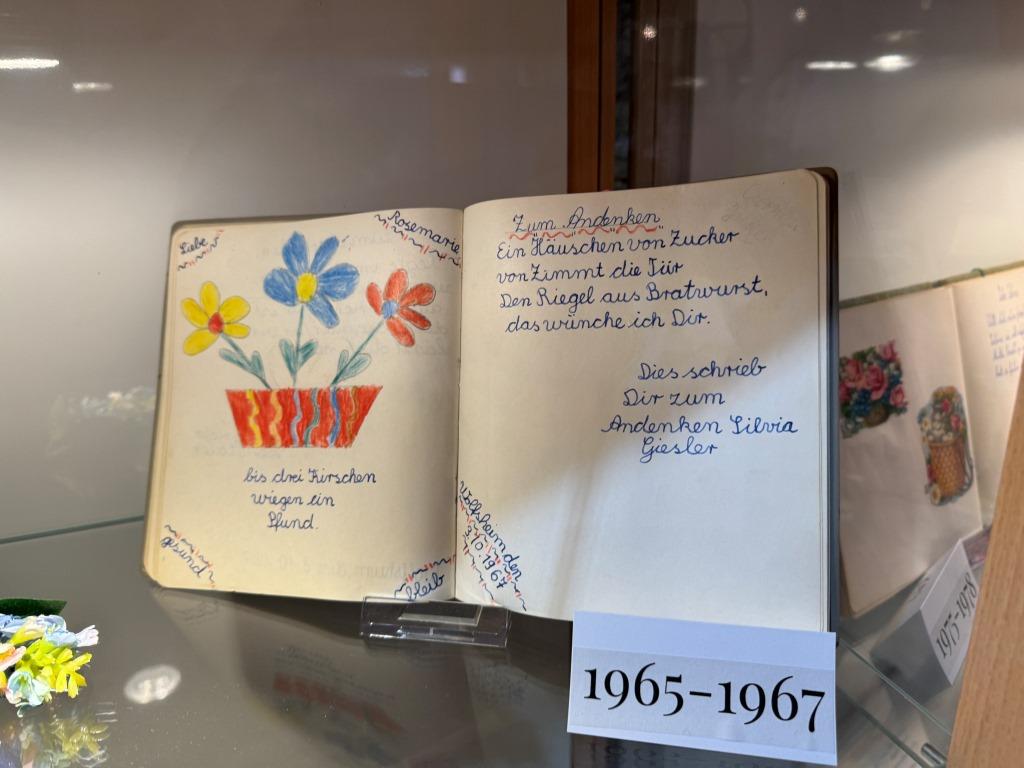 Liebe
Rosemarie
bis drei Kirschen
wiegen ein
Pfund.
gesund
bleib
Zum Andenken
Ein Häuschen von Zucker
von Zimmt die Tür
Den Riegel aus Bratwurst,
das wünche ich Dir.
Dies schrieb
Dir zum
Andenken Silvia
Giesler
Wolfsheim den
1967
1965–1967